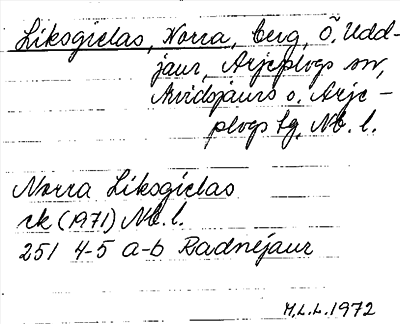 Liksgielas, Norra, berg, Ö. Udd-
jaur, Arjeplogs sn,
Kvidsjaurs o. Arje-
plogs tg, Nb. l.
Norra Liksgielas
rk (1971) Nb. l.
251 4-5 a-b Radnejaur
M.L.L. 1972